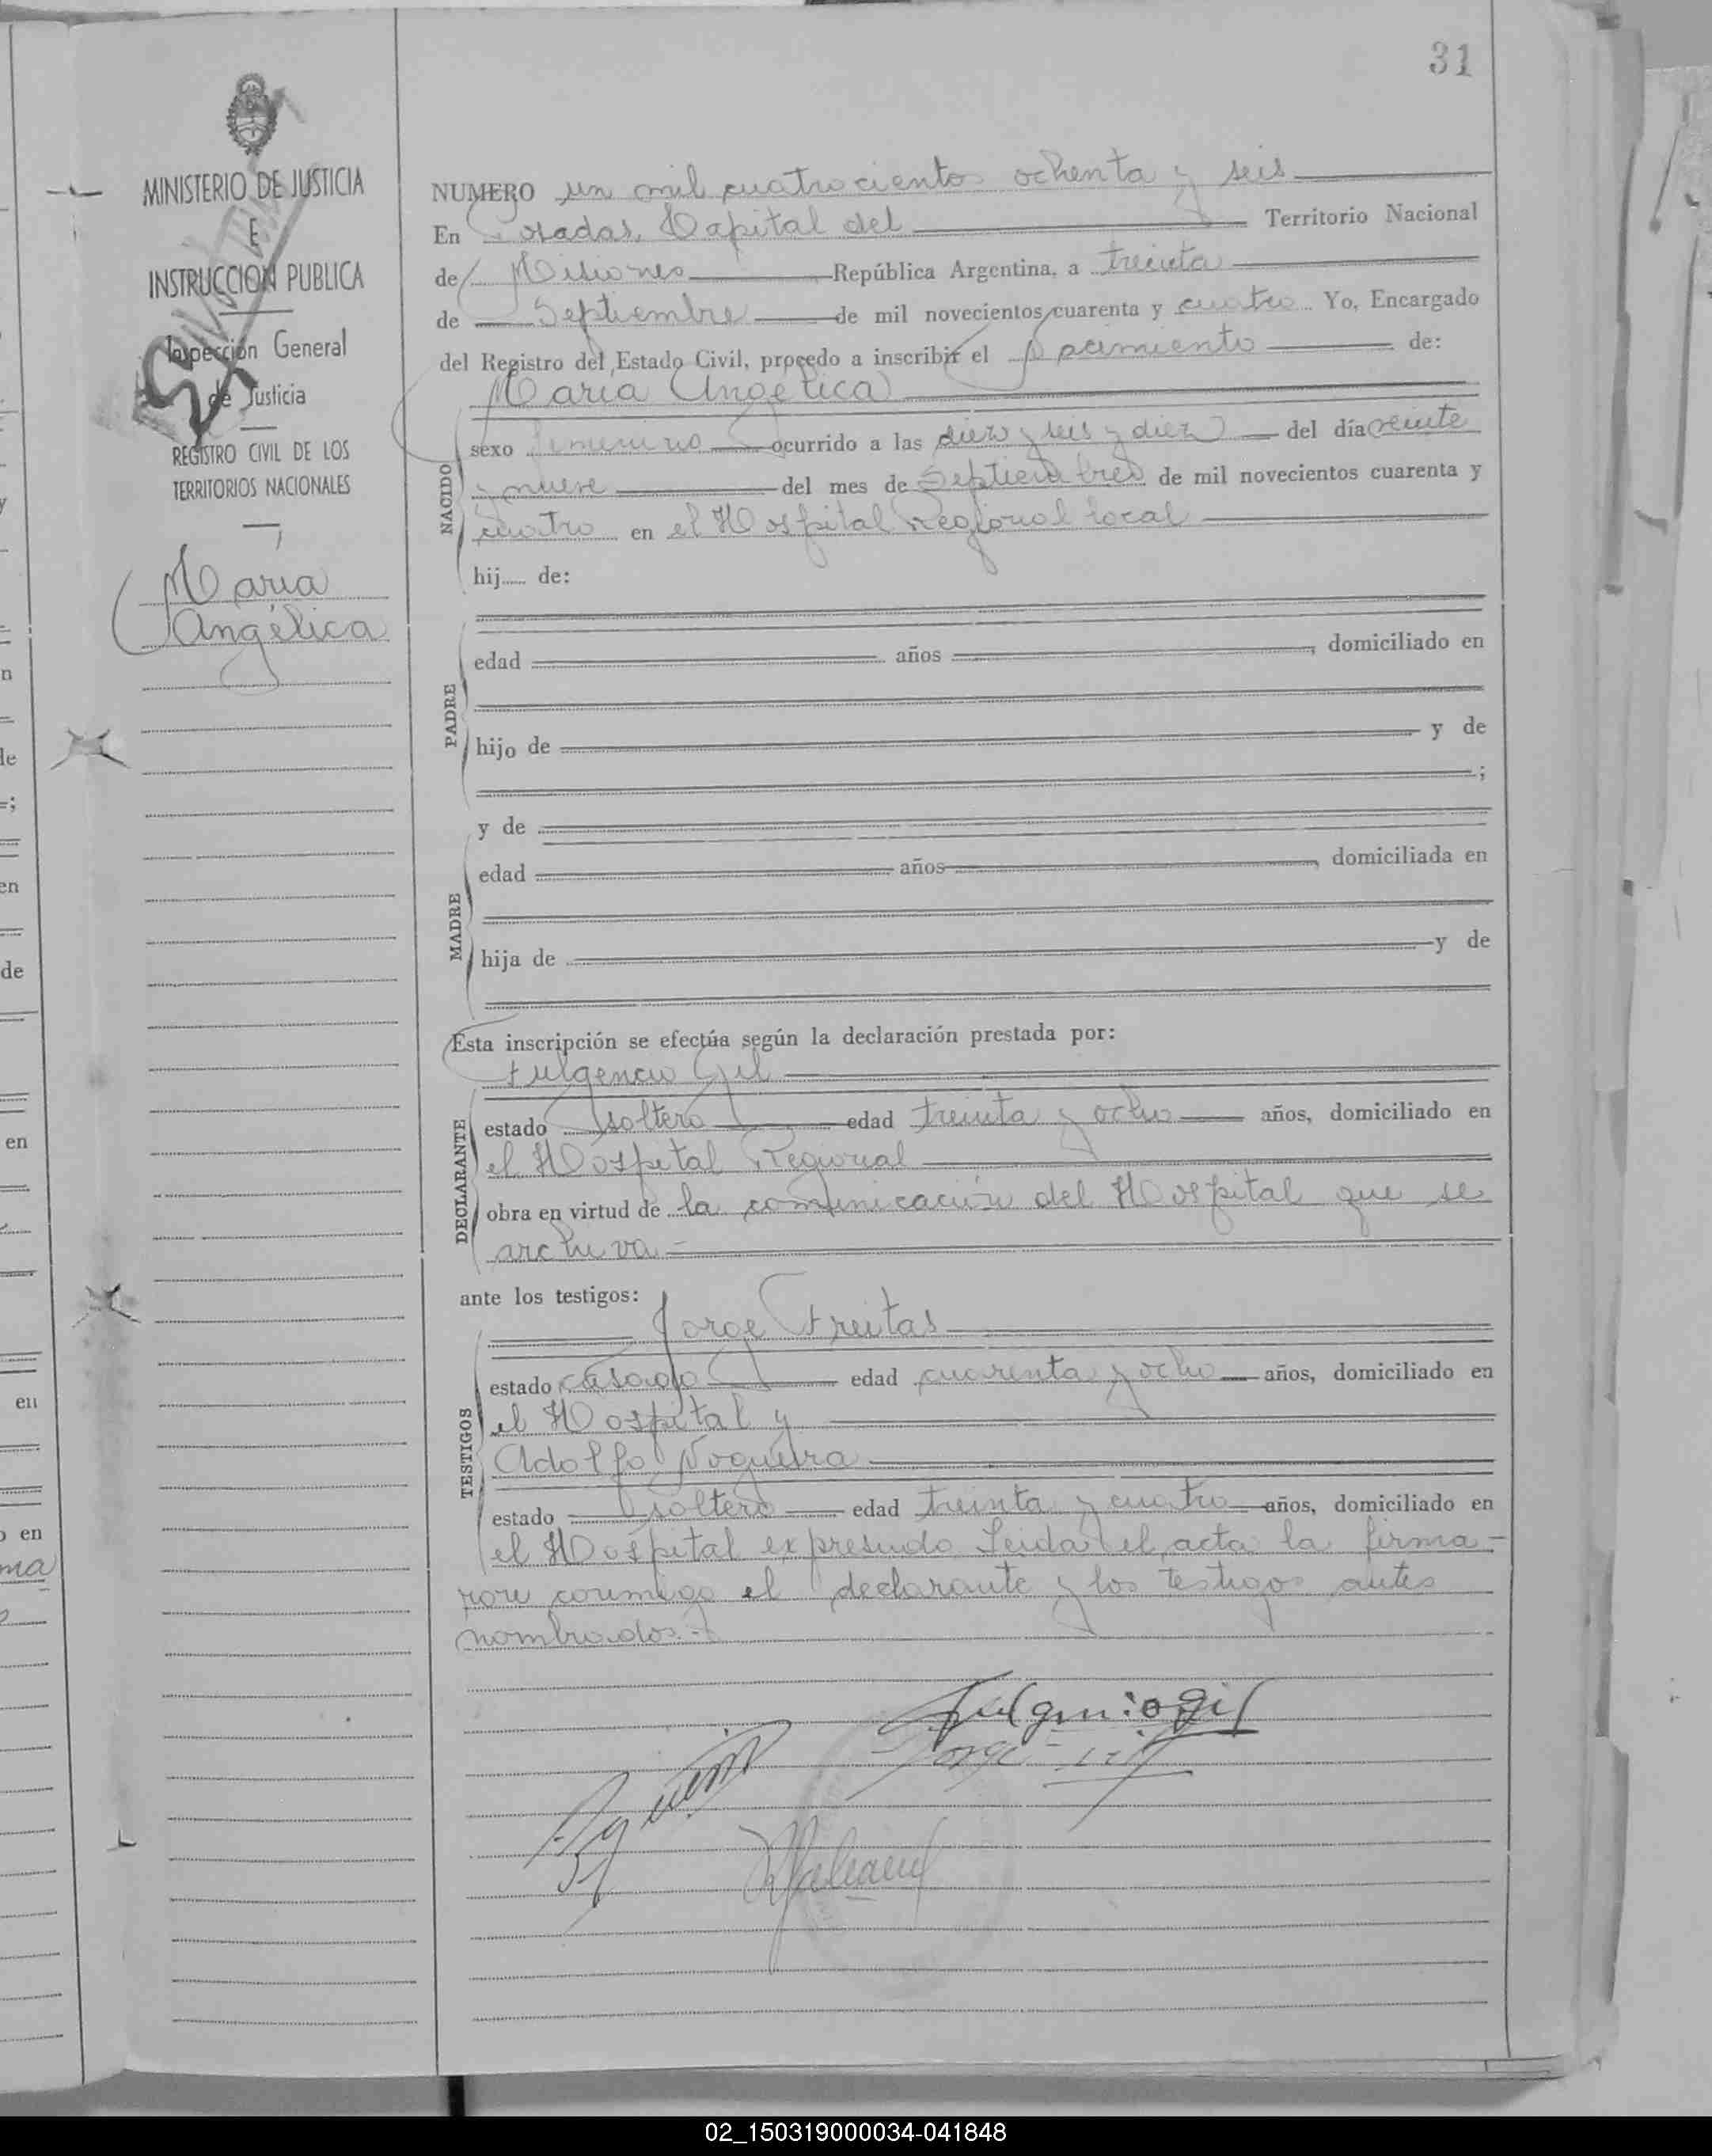 31
MINISTERIO DE JUSTICIA
E
INSTRUCCION PUBLICA
Inspección General
de Justicia
REGISTRO CIVIL DE LOS
TERRITORIOS NACIONALES
Maria
Angélica
NUMERO un mil cuatrocientos ochenta y seis
En Posadas, Capital del Territorio Nacional
de Misiones República Argentina, a treinta
de Septiembre de mil novecientos cuarenta y cuatro Yo, Encargado
del Registro del Estado Civil, procedo a inscribir el nacimiento de:
Maria Angelica
NACIDO
sexo femenino ocurrido a las diez y seis y diez del día veinte
y nueve del mes de Septiembre de mil novecientos cuarenta y
cuatro en el Hospital Regional local
hij..... de:
PADRE
edad años , domiciliado en
hijo de y de
;
y de
MADRE
edad años , domiciliada en
hija de y de
Esta inscripción se efectúa según la declaración prestada por:
Fulgencio Gil
DECLARANTE
estado soltero edad treinta y ocho años, domiciliado en
el Hospital Regional
obra en virtud de la comunicación del Hospital que se
archiva.-
ante los testigos:
Jorge Freitas
TESTIGOS
estado casado edad cuarenta y ocho años, domiciliado en
el Hospital y
Adolfo Nogueira
estado soltero edad treinta y cuatro años, domiciliado en
el Hospital expresado Leida el acta la firma-
ron conmigo el declarante y los testigos antes
nombrados.-
Fulgencio Gil
Jorge
02_150319000034-041848